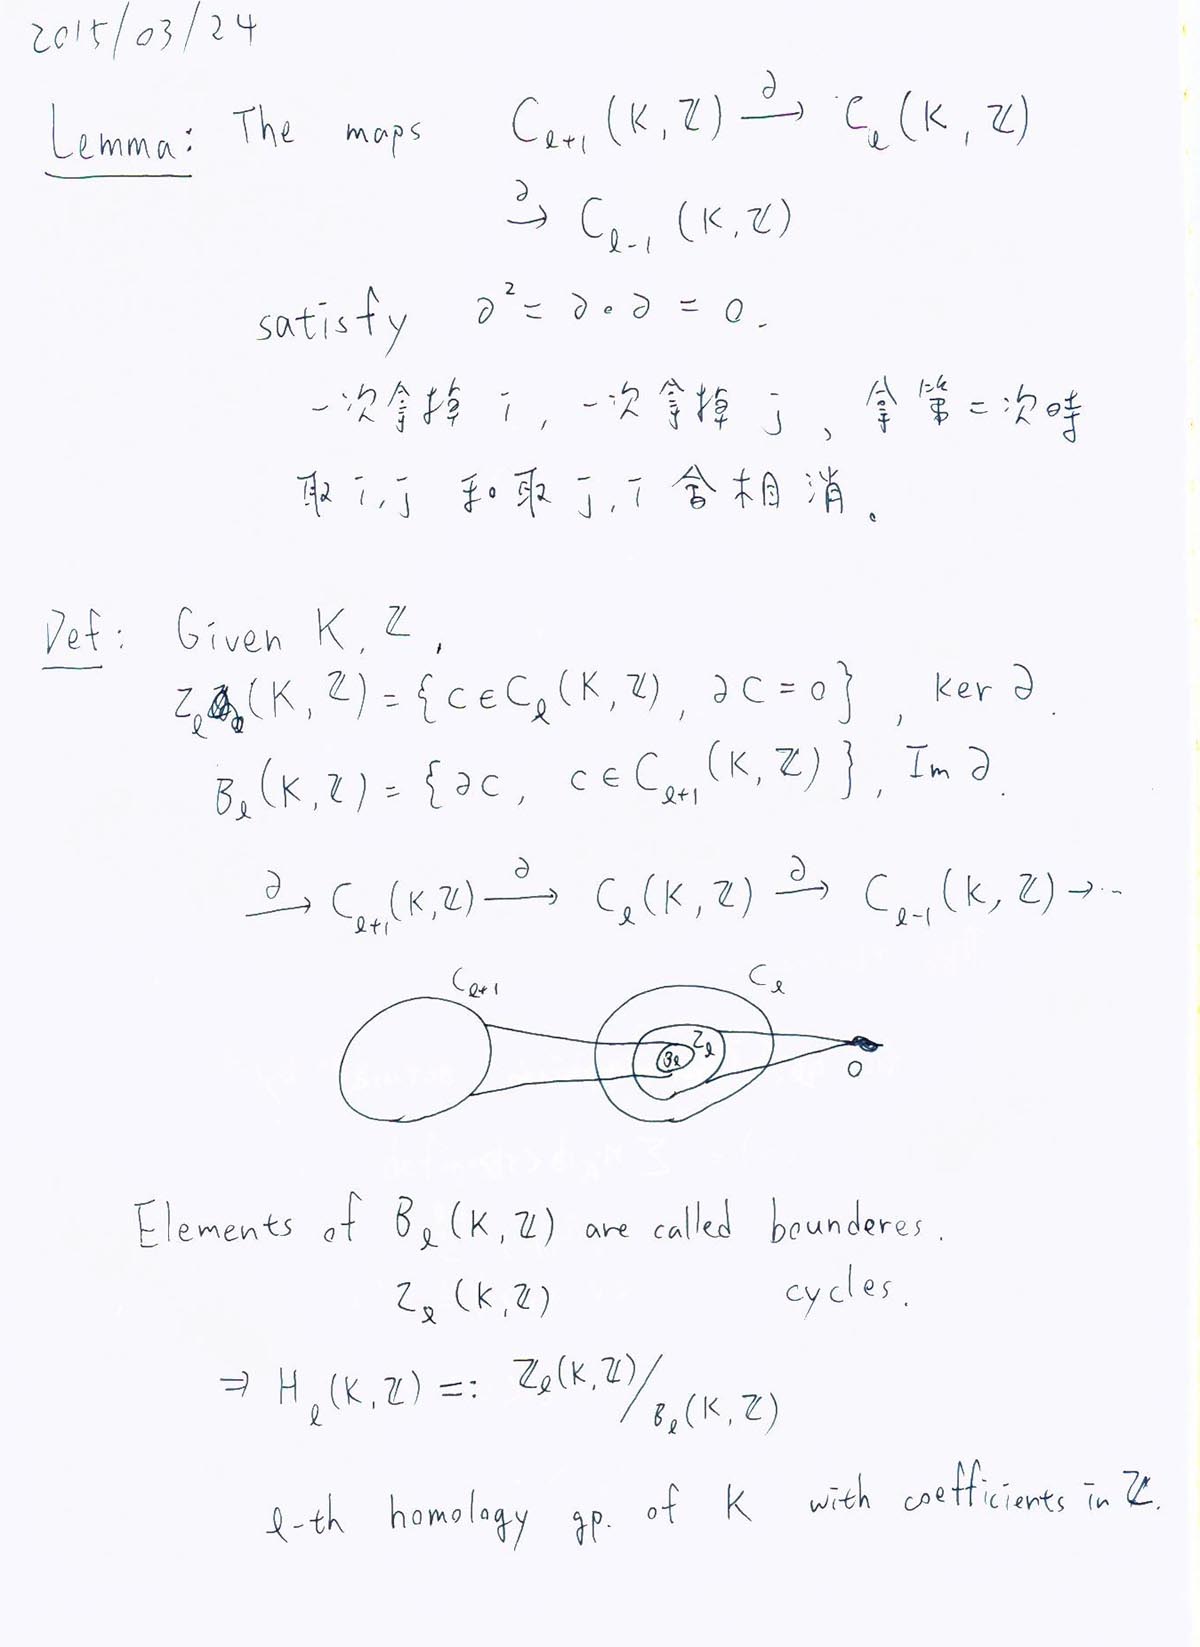 2015/03/24
Lemma: The maps C_{ℓ+1}(K, ℤ) —∂→ C_ℓ(K, ℤ)
—∂→ C_{ℓ-1}(K, ℤ)
satisfy ∂² = ∂∘∂ = 0.
一次拿掉 i, 一次拿掉 j, 拿第二次時
取 i, j 和取 j, i 會相消。
Def: Given K, ℤ,
Z_ℓ(K, ℤ) = {c ∈ C_ℓ(K, ℤ), ∂c = 0}, ker ∂.
B_ℓ(K, ℤ) = {∂c, c ∈ C_{ℓ+1}(K, ℤ)}, Im ∂.
—∂→ C_{ℓ+1}(K, ℤ) —∂→ C_ℓ(K, ℤ) —∂→ C_{ℓ-1}(K, ℤ) → ...
C_{ℓ+1} C_ℓ
B_ℓ Z_ℓ
0
Elements of B_ℓ(K, ℤ) are called bounderes.
Z_ℓ(K, ℤ) cycles.
⇒ H_ℓ(K, ℤ) =: Z_ℓ(K, ℤ)/B_ℓ(K, ℤ)
ℓ-th homology gp. of K with coefficients in ℤ.